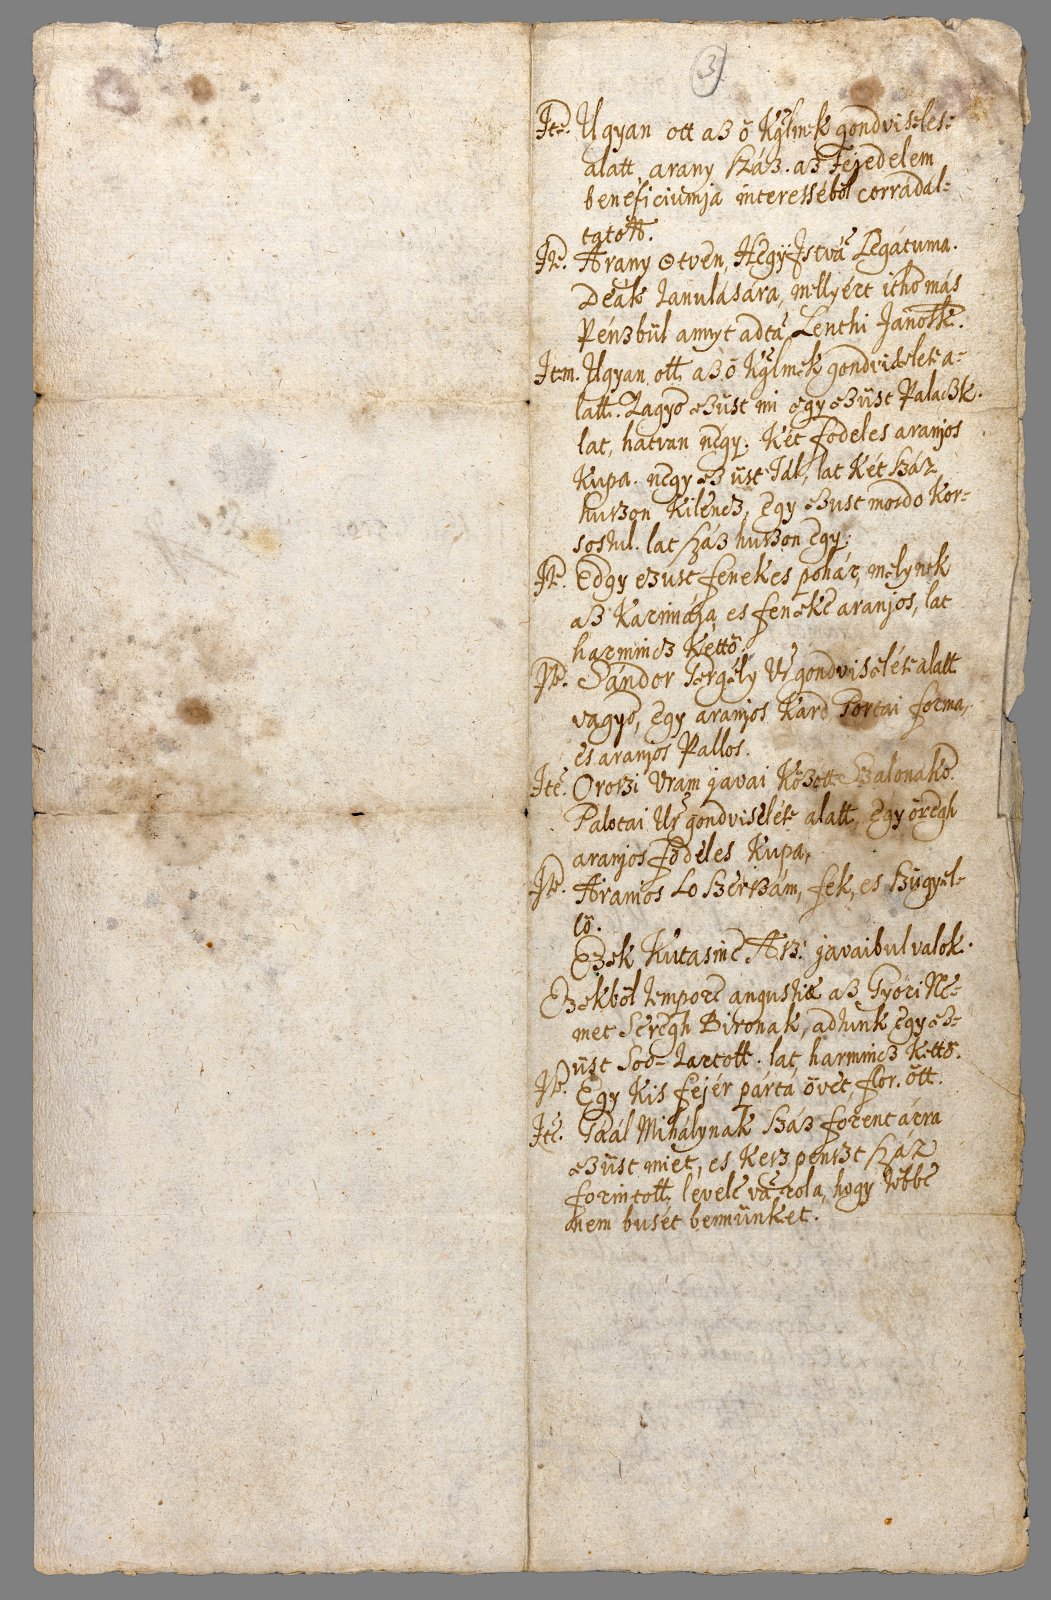 3
Ite. Ugyan ott az ő Kglmek gondviselese
alatt, arany száz. az Fejedelem
beneficiumja interesséből corradal-
tatott.
Ite. Arany ötven, Hegÿ Istvā Legátuma.
Deák tanulására, mellyért itthō más
Pénzbül annyt adtā Lenthi Janosk.
Item. Ugyan ott az ő Kglmek gondviselete a-
latt. Vagyō ezüst mi egy ezüst Palaczk.
lat, hatvan négy. Két födeles aranjos
Kupa. négy ezüst Tál, lat Két száz
huszon Kilencz, Egy ezust mosdo Kor-
sostul. lat száz huszon Egy.
Ite. Edgy ezust fenekes pohár, melynek
az Karimája, es feneke aranjos, lat
harmincz Kettö.
Ite. Sándor Gergely Ur gondviselése alatt
vagyō, Egy aranjos Kard Portai forma,
es aranjos Pallos.
Ite. Oroszi Uram javai Között Szalonakō
Palotai Ur gondviselése alatt, Egy öregh
aranjos födeles Kupa,
Ite. Aranios Lo szerszám, fek, es szügyel-
lö.
Ezek Kutasine Asz: javaibul valok.
Ezekből tempore angustiæ az Györi Ne-
met Seregh Bironak, adtunk Egy ez-
üst Sod-tartott. lat harmincz Kettö.
Ite. Egy Kis fejér párta övet, flor. ött.
Ite. Gaál Mihálynak száz forent ácra
ezüst miet, es Kesz penszt száz
forintott, levele vā rola, hogy többe
nem busét bennünket.